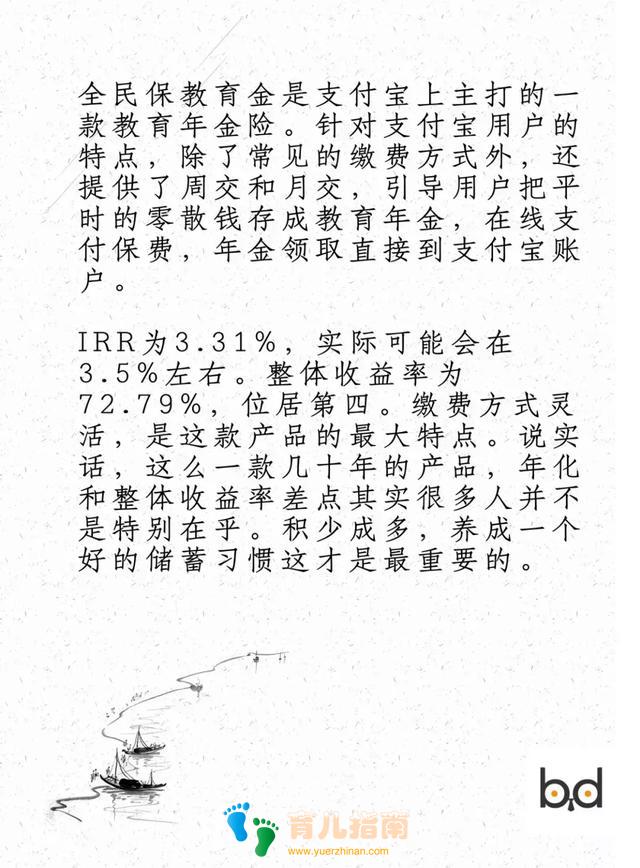 全民保教育金是支付宝上主打的一
款教育年金险。针对支付宝用户的
特点，除了常见的缴费方式外，还
提供了周交和月交，引导用户把平
时的零散钱存成教育年金，在线支
付保费，年金领取直接到支付宝账
户。
IRR为3.31%，实际可能会在
3.5%左右。整体收益率为
72.79%，位居第四。缴费方式灵
活，是这款产品的最大特点。说实
话，这么一款几十年的产品，年化
和整体收益率差点其实很多人并不
是特别在乎。积少成多，养成一个
好的储蓄习惯这才是最重要的。
b,d
育儿指南
www.yuerzhinan.com